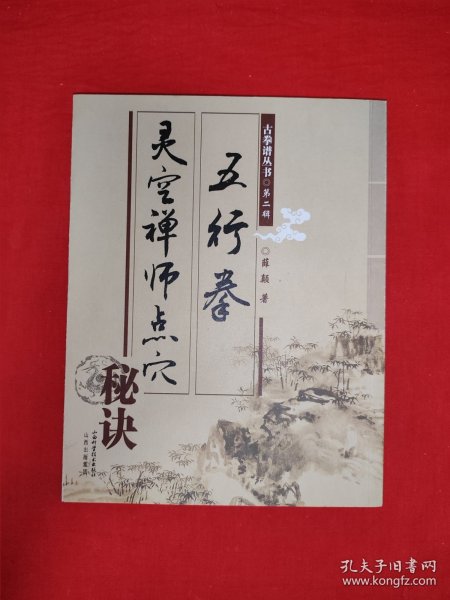 古拳谱丛书◎第二辑
◎薛颠 著
五行拳
灵空禅师点穴
秘诀
山西出版集团
山西科学技术出版社
孔夫子旧书网
www.kongfz.com